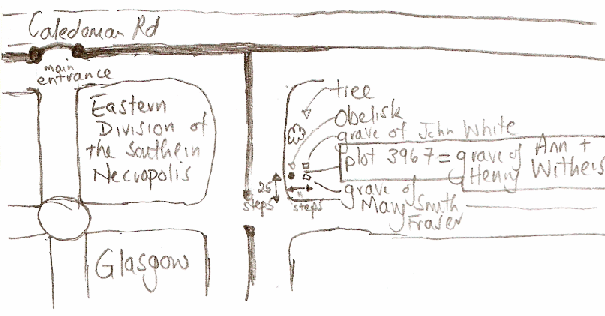 Caledonian Rd
main
entrance
Eastern
Division of
the Southern
Necropolis
tree
Obelisk
grave of John White
plot 3967 = grave of Ann +
Henry Withers
25
steps
steps
grave of
Mary Smyth
Fraser
Glasgow